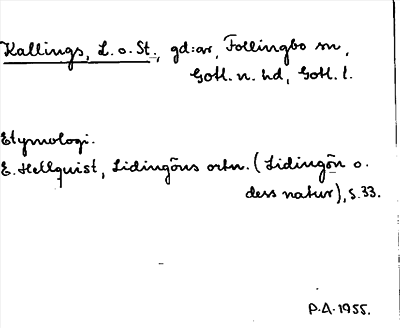 Kallings, L. o. St., gd:ar, Follingbo sn,
Gotl. n. hd, Gotl. l.
Etymologi.
E. Hellquist, Lidingöns ortn. (Lidingön o.
dess natur), s. 33.
P.A. 1955.